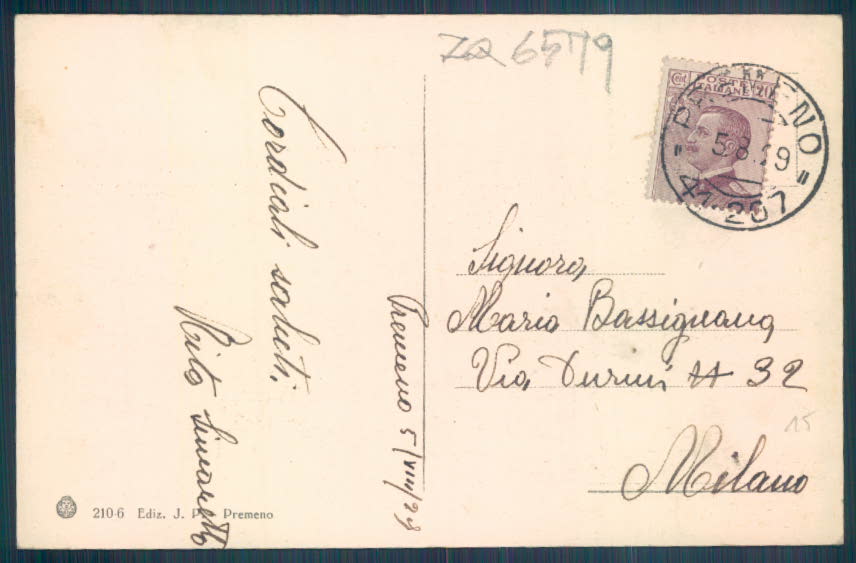 ZQ 6519
POSTE
ITALIANE
PREMENO
5.8.29
41-207
Cordiali saluti.
Rita
Premeno 5/VIII/29
Signora
Maria Bassignana
Via Durini # 32
Milano
15
210-6 Ediz. J. P. Premeno